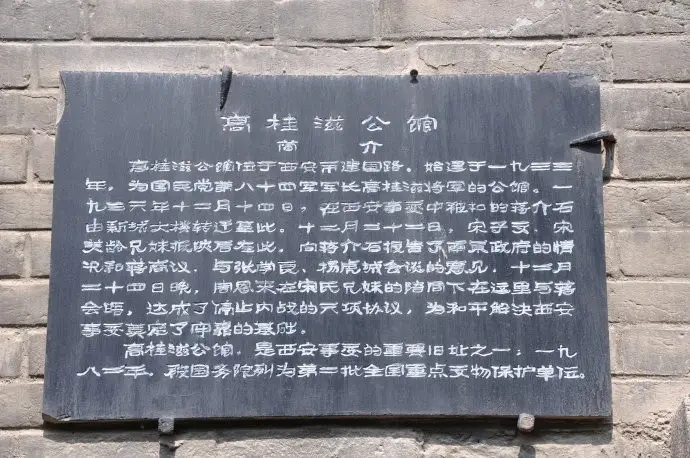 高桂滋公馆
简 介
高桂滋公馆位于西安市建国路。始建于一九三三
年，为国民党第八十四军军长高桂滋将军的公馆。一
九三六年十二月十四日，在西安事变中被扣的蒋介石
由新城大楼转迁至此。十二月二十二日，宋子文、宋
美龄兄妹抵陕后在此，向蒋介石报告了南京政府的情
况和蒋商议，与张学良、杨虎城会谈的意见，十二月
二十四日晚，周恩来在宋氏兄妹的陪同下在这里与蒋
会晤，达成了停止内战的六项协议，为和平解决西安
事变奠定了可靠的基础。
高桂滋公馆，是西安事变的重要旧址之一；一九
八二年，被国务院列为第二批全国重点文物保护单位。